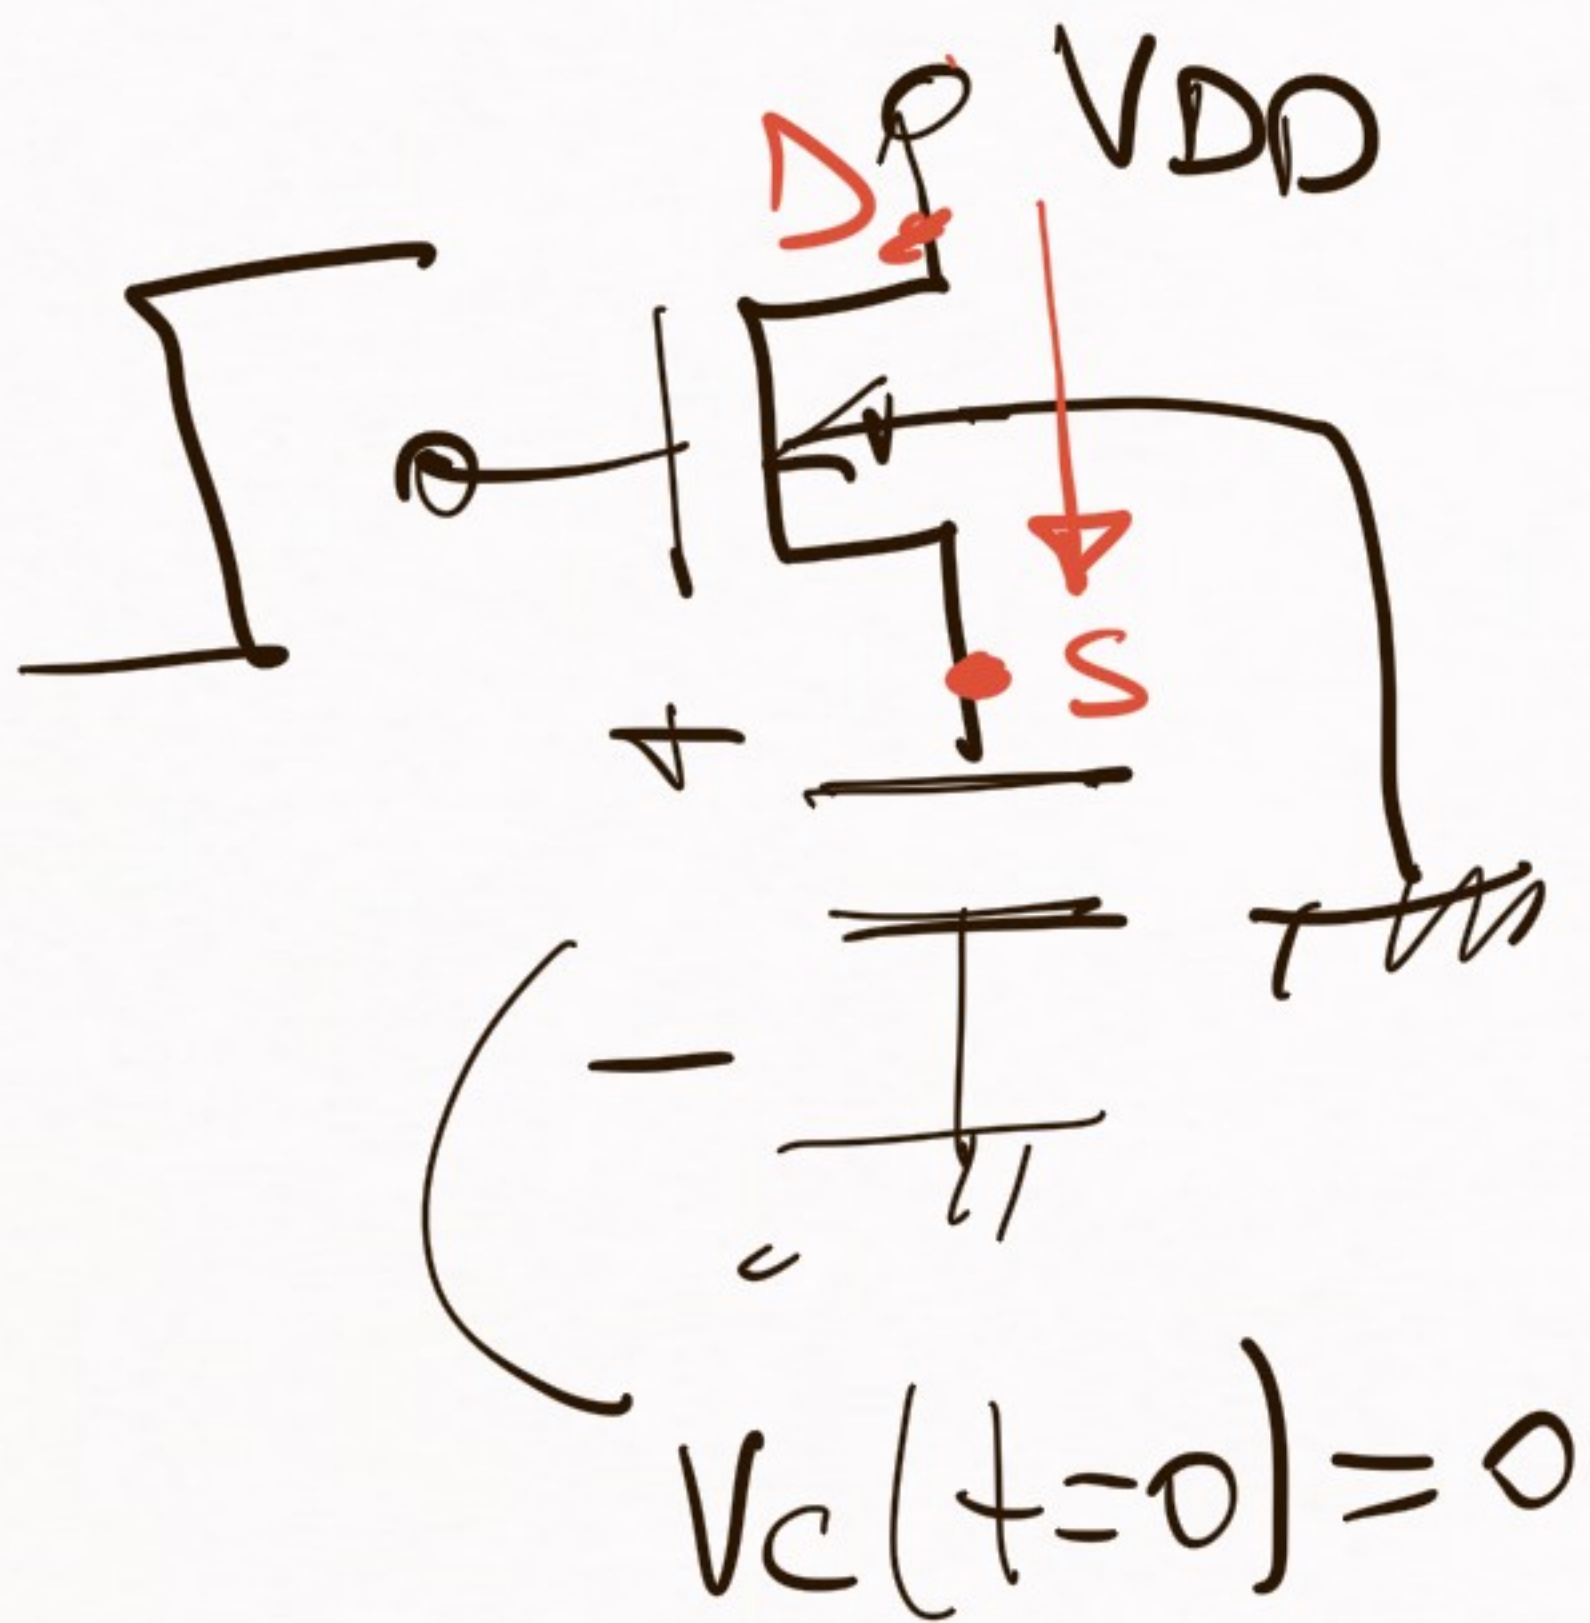 VDD
D
S
+
-
Vc(t=0)=0